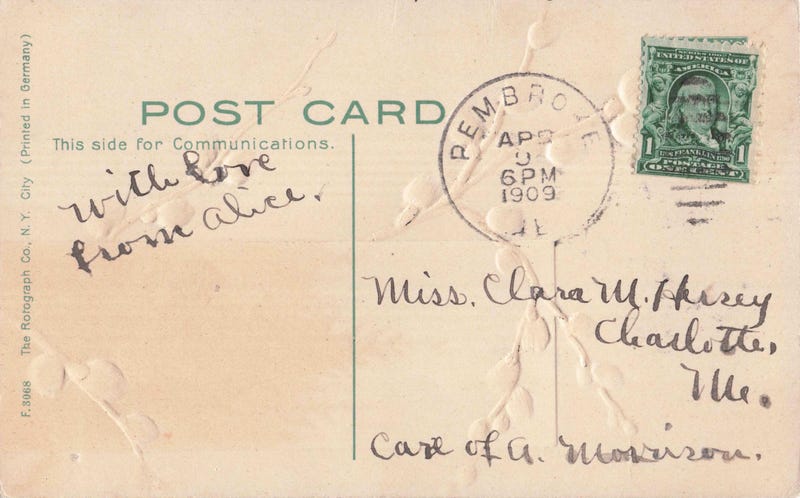 F.3068 The Rotograph Co., N.Y. City (Printed in Germany)
POST CARD
This side for Communications.
With love
from Alice.
PEMBROKE
APR
6 PM
1909
ME
SERIES 1902
UNITED STATES OF
AMERICA
1 FRANKLIN 1
POSTAGE
ONE CENT
Miss. Clara M. Hersey
Charlotte,
Me.
Care of A. Morrison.